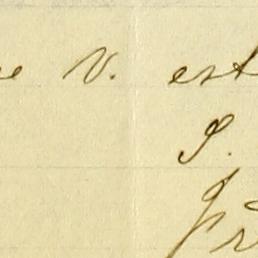 e V. est
S.
Gr